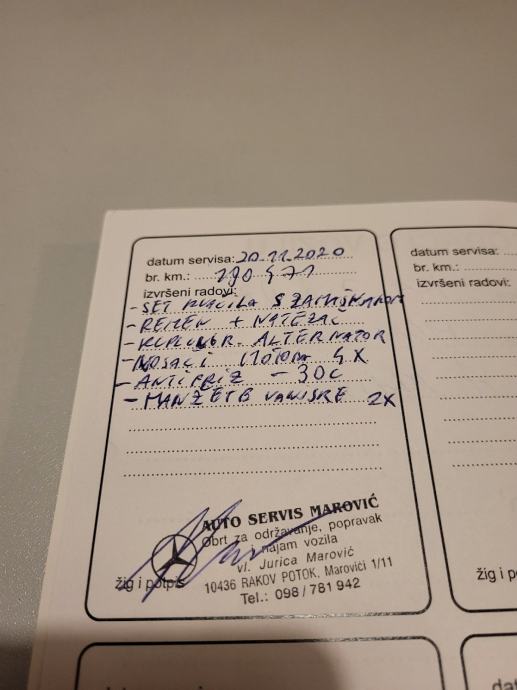 datum servisa: 20.11.2020
br. km.:
izvršeni radovi:
- SET KVAČILA S ZAMAŠNJAKOM
- REMEN + NATEZAČ
- ALTERNATOR
- NOSAČI MOTORA 4X
- ANTIFRIZ - 30C
- MANŽETE VANJSKE 2X
AUTO SERVIS MAROVIĆ
Obrt za održavanje, popravak
i najam vozila
vl. Jurica Marović
10436 RAKOV POTOK, Marovići 1/11
Tel.: 098/781 942
žig i potpis
datum servisa:
br. km.:
izvršeni radovi:
žig i p